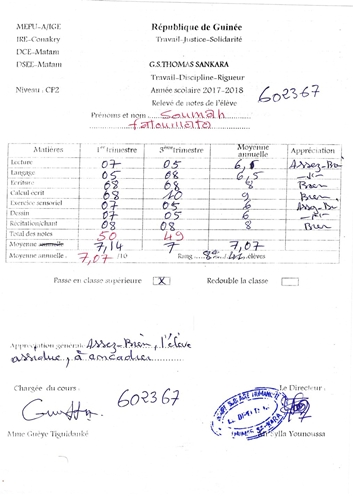 MEPU-A/IGE République de Guinée
IRE-Conakry Travail-Justice-Solidarité
DCE-Matam
DSEE-Matam G.S.THOMAS SANKARA
Travail-Discipline-Rigueur
Niveau : CP2 Année scolaire 2017-2018 602367
Relevé de notes de l'élève
Prénoms et nom : Soumah
Fatoumata
Matières 1er trimestre 3ème trimestre Moyenne annuelle Appréciation
Lecture 07 05 6,5 Assez-Bien
Langage 05 08 6,5 -//-
Ecriture 08 08 8 Bien
Calcul écrit 08 10 9 Bien
Exercice sensoriel 07 05 6
Dessin 07 05 6 -//-
Récitation/chant 08 08 8 Bien
Total des notes 50 49
Moyenne annuelle 7,14 7 7,07
Moyenne annuelle : 7,07 /10 Rang 8e / 42 élèves
Passe en classe supérieure X Redouble la classe
Appréciation générale: Assez-Bien, l'élève
assidue, à encadrer
Chargée du cours 602367 Le Directeur
Mme Guèye Tiguidanké Sylla Younoussa